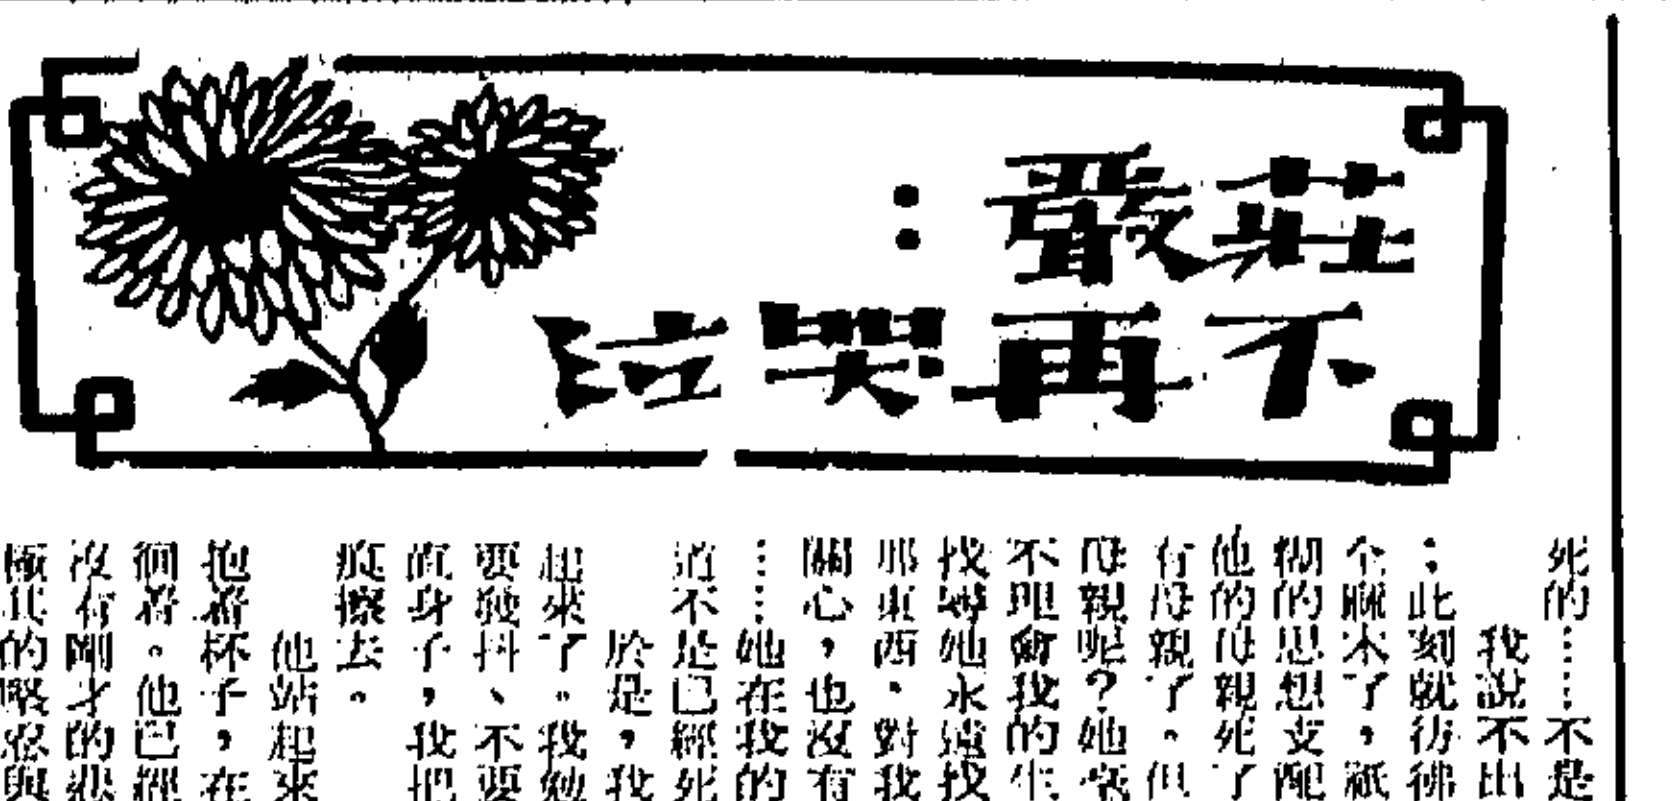 莊嚴：
不再哭泣
死的……不是
我說不出
；此刻就彷彿
全麻木了，祇
糊的思想支配
他的母親死了
有母親了。但
母親呢？她毫
不理會我的生
找尋她永遠找
那東西，對我
關心，也沒有
……她在我的
道不是已經死
於是，我
起來了。我勉
要發抖、不要
直身子，我把
痕擦去。
他站起來
抱着杯子，在
徊着。他已經
沒有剛才的悲
極其的堅忍與